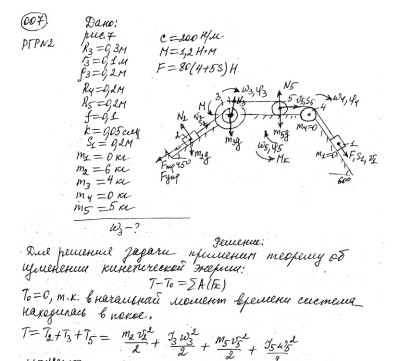 007.
РГР№2
Дано:
рис.7
R3=0,3м
r3=0,1м
ρ3=0,2м
R4=0,2м
R5=0,2м
f=0,1
k=0,05см
S1=0,2м
m1=0 кг
m2=6 кг
m3=4 кг
m4=0 кг
m5=5 кг
ω3-?
C=200 Н/м
M=1,2 Н·м
F=80(4+5S) Н
ω3,φ3
N5
5
V5 S5
4
ω4,φ4
3
M
N2
2
m4=0
m5g
m3g
m2g
ω5,φ5
Mк
m1=0
1
F,S1,V1
Fтр
45°
Fупр
60°
Решение:
Для решения задачи применим теорему об
изменении кинетической энергии:
T-T0=ΣA(Fк)
T0=0, т.к. в начальный момент времени система
находилась в покое.,
T=T2+T3+T5= m2V2²/2 + J3ω3²/2 + m5V5²/2 + J5ω5²/2